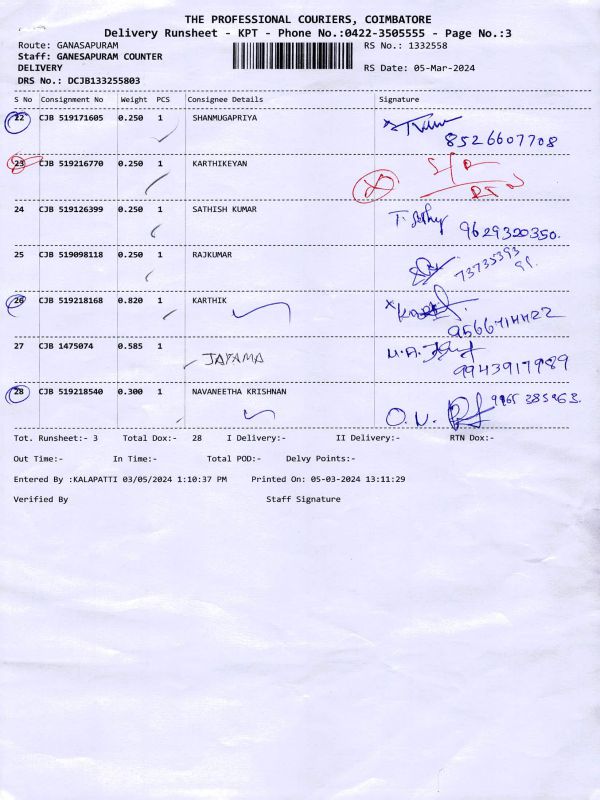 THE PROFESSIONAL COURIERS, COIMBATORE
Delivery Runsheet - KPT - Phone No.:0422-3505555 - Page No.:3
Route: GANASAPURAM
RS No.: 1332558
Staff: GANESAPURAM COUNTER
DELIVERY
RS Date: 05-Mar-2024
DRS No.: DCJB133255803
S No Consignment No Weight PCS Consignee Details Signature
22 CJB 519171605 0.250 1 SHANMUGAPRIYA
8526607708
23 CJB 519216770 0.250 1 KARTHIKEYAN
24 CJB 519126399 0.250 1 SATHISH KUMAR
9629320350.
25 CJB 519098118 0.250 1 RAJKUMAR
73735393
91.
26 CJB 519218168 0.820 1 KARTHIK
9566714422
27 CJB 1475074 0.585 1 JAYAMA
9943917989
28 CJB 519218540 0.300 1 NAVANEETHA KRISHNAN
9965 385963.
Tot. Runsheet:- 3 Total Dox:- 28 I Delivery:- II Delivery:- RTN Dox:-
Out Time:- In Time:- Total POD:- Delvy Points:-
Entered By :KALAPATTI 03/05/2024 1:10:37 PM Printed On: 05-03-2024 13:11:29
Verified By Staff Signature